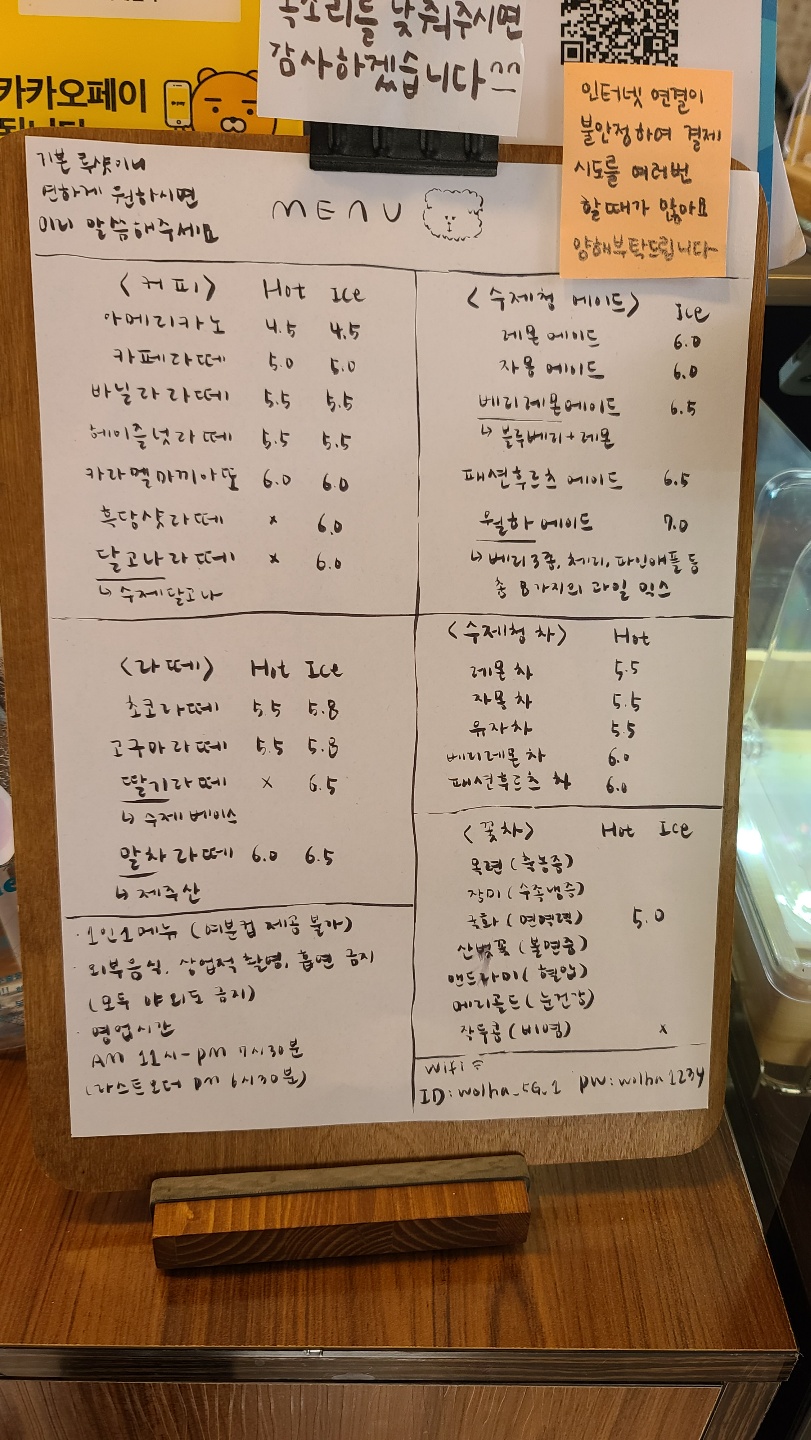 목소리를 낮춰주시면
감사하겠습니다^^
카카오페이
됩니다
인터넷 연결이
불안정하여 결제
시도를 여러번
할 때가 많아요
양해부탁드립니다~
기본 투샷이니
연하게 원하시면
미리 말씀해주세요
MENU
<커피> Hot Ice
아메리카노 4.5 4.5
카페라떼 5.0 5.0
바닐라라떼 5.5 5.5
헤이즐넛라떼 5.5 5.5
카라멜마끼아또 6.0 6.0
흑당샷라떼 x 6.0
달고나라떼 x 6.0
↳ 수제달고나
<수제청 에이드> Ice
레몬에이드 6.0
자몽에이드 6.0
베리레몬에이드 6.5
↳ 블루베리+레몬
패션후르츠 에이드 6.5
월하에이드 7.0
↳ 베리3종, 체리, 파인애플 등
총 8가지의 과일 믹스
<라떼> Hot Ice
초코라떼 5.5 5.8
고구마라떼 5.5 5.8
딸기라떼 x 6.5
↳ 수제베이스
말차라떼 6.0 6.5
↳ 제주산
<수제청 차> Hot
레몬차 5.5
자몽차 5.5
유자차 5.5
베리레몬차 6.0
패션후르츠 차 6.0
<꽃차> Hot Ice
목련(축농증)
장미(수족냉증)
국화(면역력) 5.0
산벚꽃(불면증)
맨드라미(혈압)
메리골드(눈건강)
작두콩(비염) x
· 1인1메뉴 (여분컵 제공 불가)
· 외부음식, 상업적 촬영, 흡연 금지
(모두 야외도 금지)
· 영업시간
AM 11시-PM 7시30분
(라스트오더 PM 6시30분)
wifi
ID: wolha_5G_1 pw: wolha1234